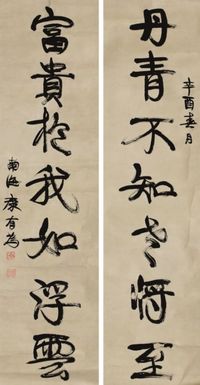 丹青不知老將至
辛酉春月
富貴於我如浮雲
南海康有為